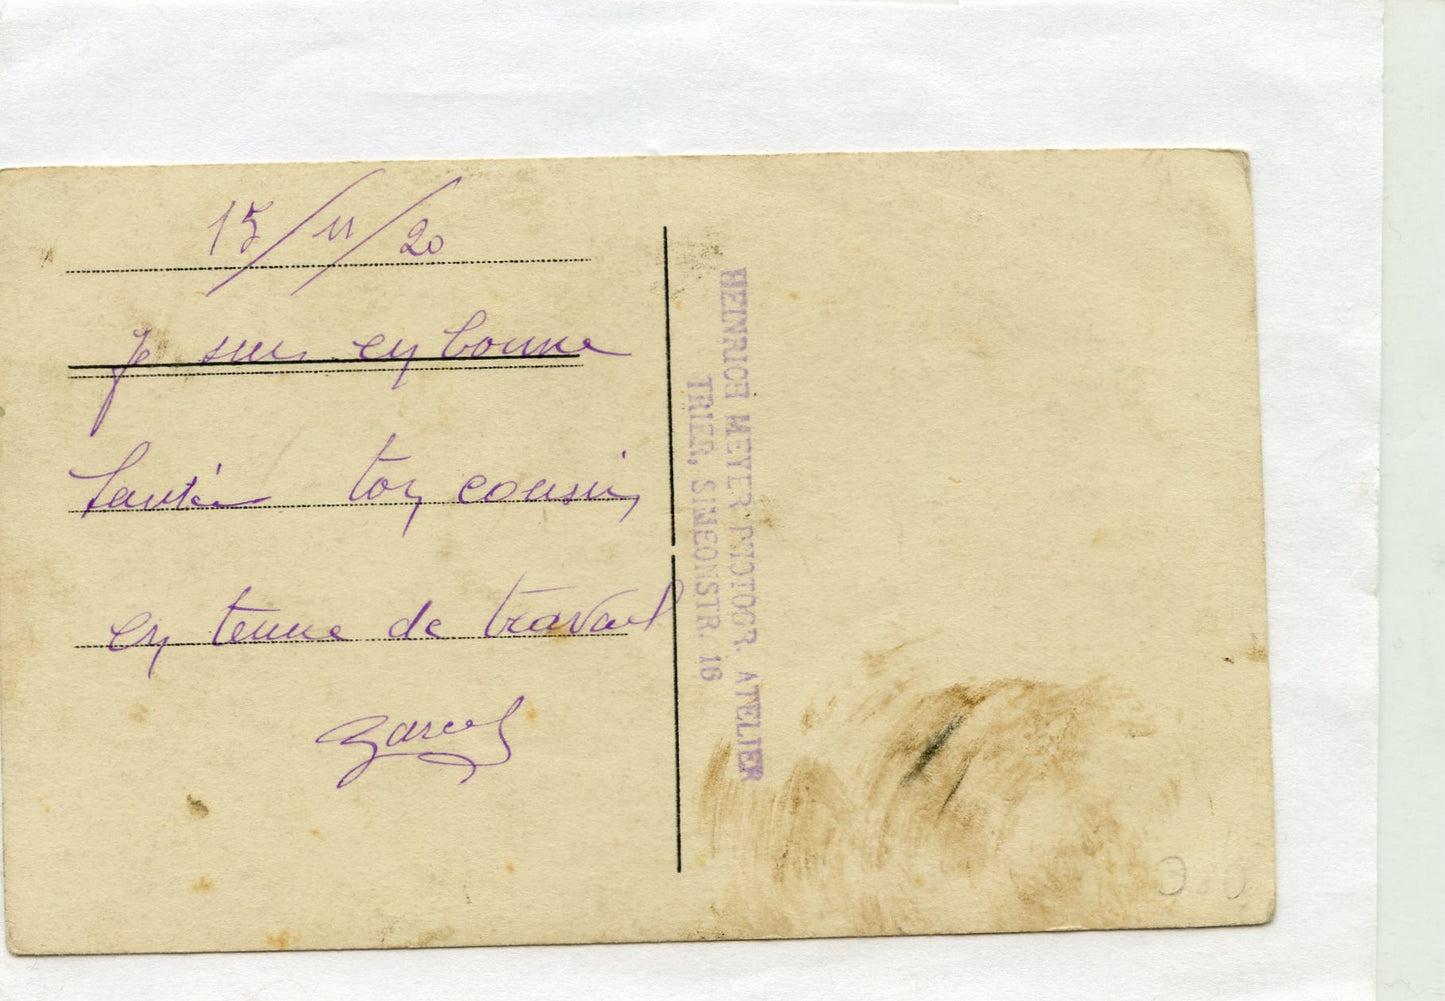 15/11/20
Je suis en bonne
Santée ton cousin
en tenue de travail
Marcel
HEINRICH MEYER PHOTOGR. ATELIER
TRIER, SIMEONSTR. 16